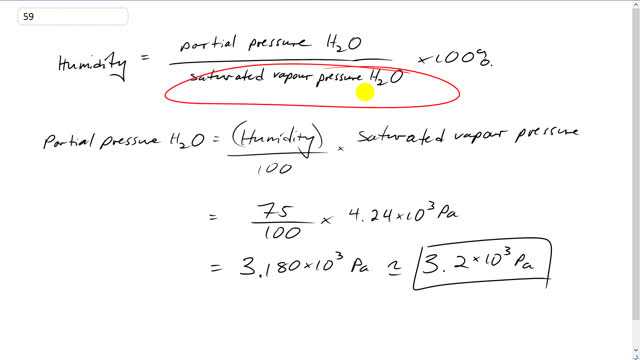 59
Humidity = partial pressure H₂O / saturated vapour pressure H₂O × 100%.
Partial pressure H₂O = (Humidity) / 100 × saturated vapour pressure
= 75 / 100 × 4.24×10³ Pa
= 3.180×10³ Pa ≃ 3.2×10³ Pa